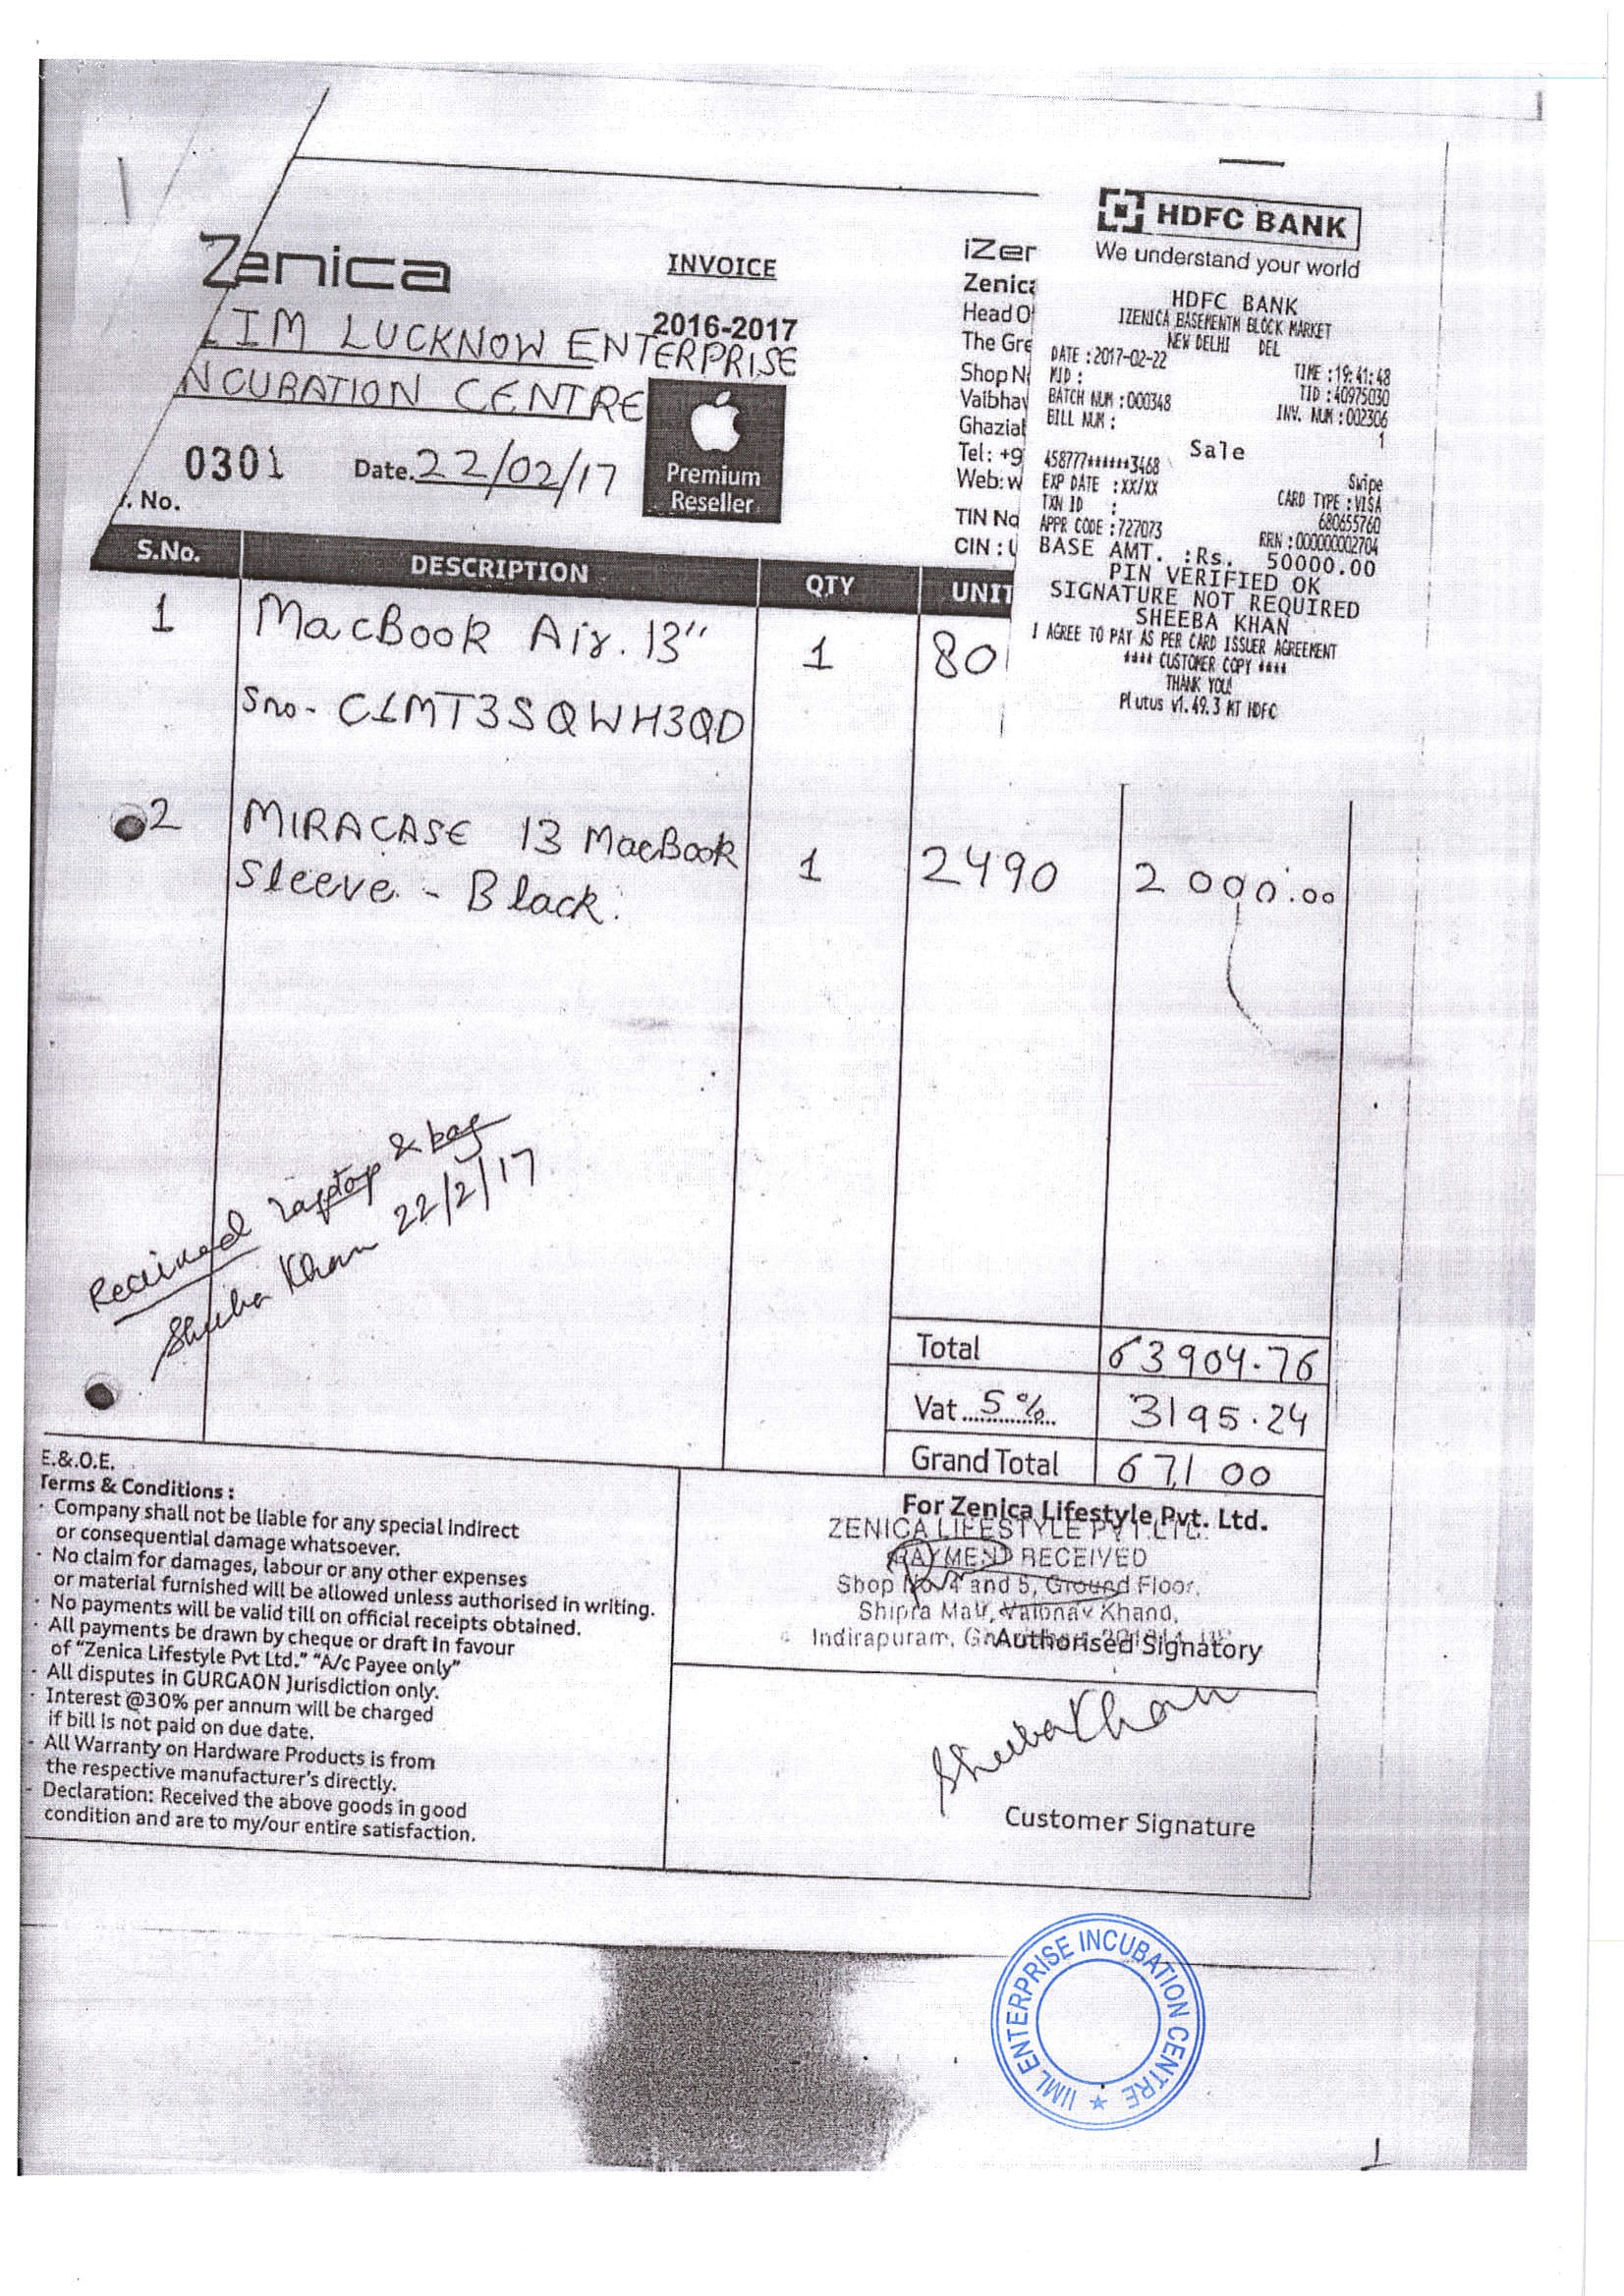 Zenica
INVOICE
2016-2017
IIM LUCKNOW ENTERPRISE
NCUBATION CENTRE
Premium
Reseller
0301
Date. 22/02/17
. No.
iZer
Zenica
Head O
The Gre
Shop N
Vaibhav
Ghaziab
Tel: +9
Web: w
TIN No
CIN : U
HDFC BANK
We understand your world
HDFC BANK
IZENICA BASEMENTM BLOCK MARKET
NEW DELHI DEL
DATE :2017-02-22 TIME :19:41:48
MID : TID :40975030
BATCH NUM :000348 INV. NUM :002306
BILL NUM : 1
Sale
458777******3468 Swipe
EXP DATE :XX/XX CARD TYPE :VISA
TXN ID : 680655760
APPR CODE :727073 RRN :000000002704
BASE AMT. :Rs. 50000.00
PIN VERIFIED OK
SIGNATURE NOT REQUIRED
SHEEBA KHAN
I AGREE TO PAY AS PER CARD ISSUER AGREEMENT
**** CUSTOMER COPY ****
THANK YOU!
Plutus v1.49.3 MT HDFC
S.No. DESCRIPTION QTY UNIT
1 MacBook Air. 13" 1 80
Sno- C1MT3SQWH3QD
2 MIRACASE 13 MacBook 1 2490 2000.00
Sleeve - Black.
Received laptop & bag
Sheeba Khan 22/2/17
Total 63904.76
Vat 5% 3195.24
Grand Total 67,100
E.&.O.E.
Terms & Conditions :
- Company shall not be liable for any special indirect
or consequential damage whatsoever.
- No claim for damages, labour or any other expenses
or material furnished will be allowed unless authorised in writing.
- No payments will be valid till on official receipts obtained.
- All payments be drawn by cheque or draft in favour
of "Zenica Lifestyle Pvt Ltd." "A/c Payee only"
- All disputes in GURGAON Jurisdiction only.
- Interest @30% per annum will be charged
if bill is not paid on due date.
- All Warranty on Hardware Products is from
the respective manufacturer's directly.
- Declaration: Received the above goods in good
condition and are to my/our entire satisfaction.
For Zenica Lifestyle Pvt. Ltd.
ZENICA LIFESTYLE PVT.LTD.
PAYMENT RECEIVED
Shop No.4 and 5, Ground Floor,
Shipra Mall, Vaibhav Khand,
Indirapuram,
Authorised Signatory
Sheeba Khan
Customer Signature
IIML ENTERPRISE INCUBATION CENTRE
1